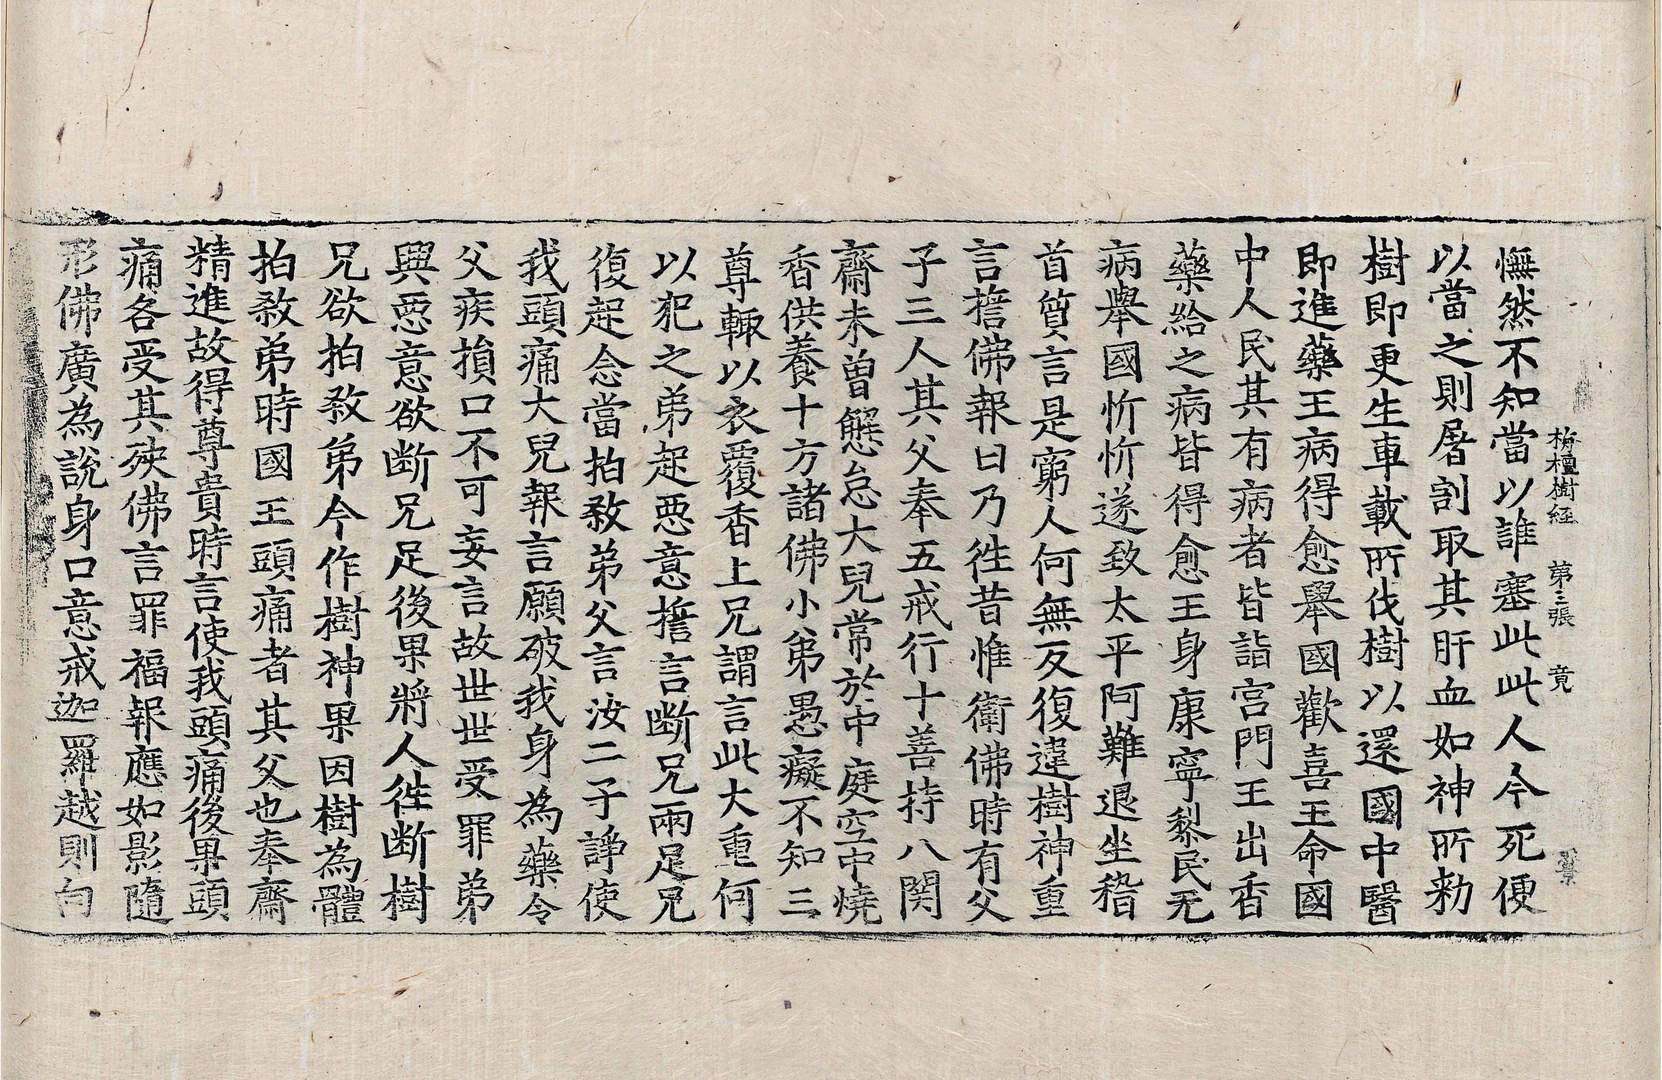 栴檀樹經　第三張　竟
憮然不知當以誰塞此此人今死便
以當之則屠割取其肝血如神所勑
樹即更生車載所伐樹以還國中醫
即進藥王病得愈舉國歡喜王命國
中人民其有病者皆詣宮門王出香
藥給之病皆得愈王身康寧黎民无
病舉國忻忻遂致太平阿難退坐稽
首質言是窮人何無反復違樹神重
言擔佛報曰乃徃昔惟衛佛時有父
子三人其父奉五戒行十善持八関
齋未曽懈怠大兒常於中庭空中燒
香供養十方諸佛小弟愚癡不知三
尊輙以衣覆香上兄謂言此大重何
以犯之弟起惡意擔言断兄兩足兄
復起念當拍敎弟父言汝二子諍使
我頭痛大兒報言願破我身為藥令
父疾損口不可妄言故世世受罪弟
興惡意欲断兄足後果將人徃断樹
兄欲拍敎弟今作樹神果因樹為體
拍敎弟時國王頭痛者其父也奉齋
精進故得尊貴時言使我頭痛後果頭
痛各受其殃佛言罪福報應如影隨
形佛廣為說身口意戒迦羅越則向